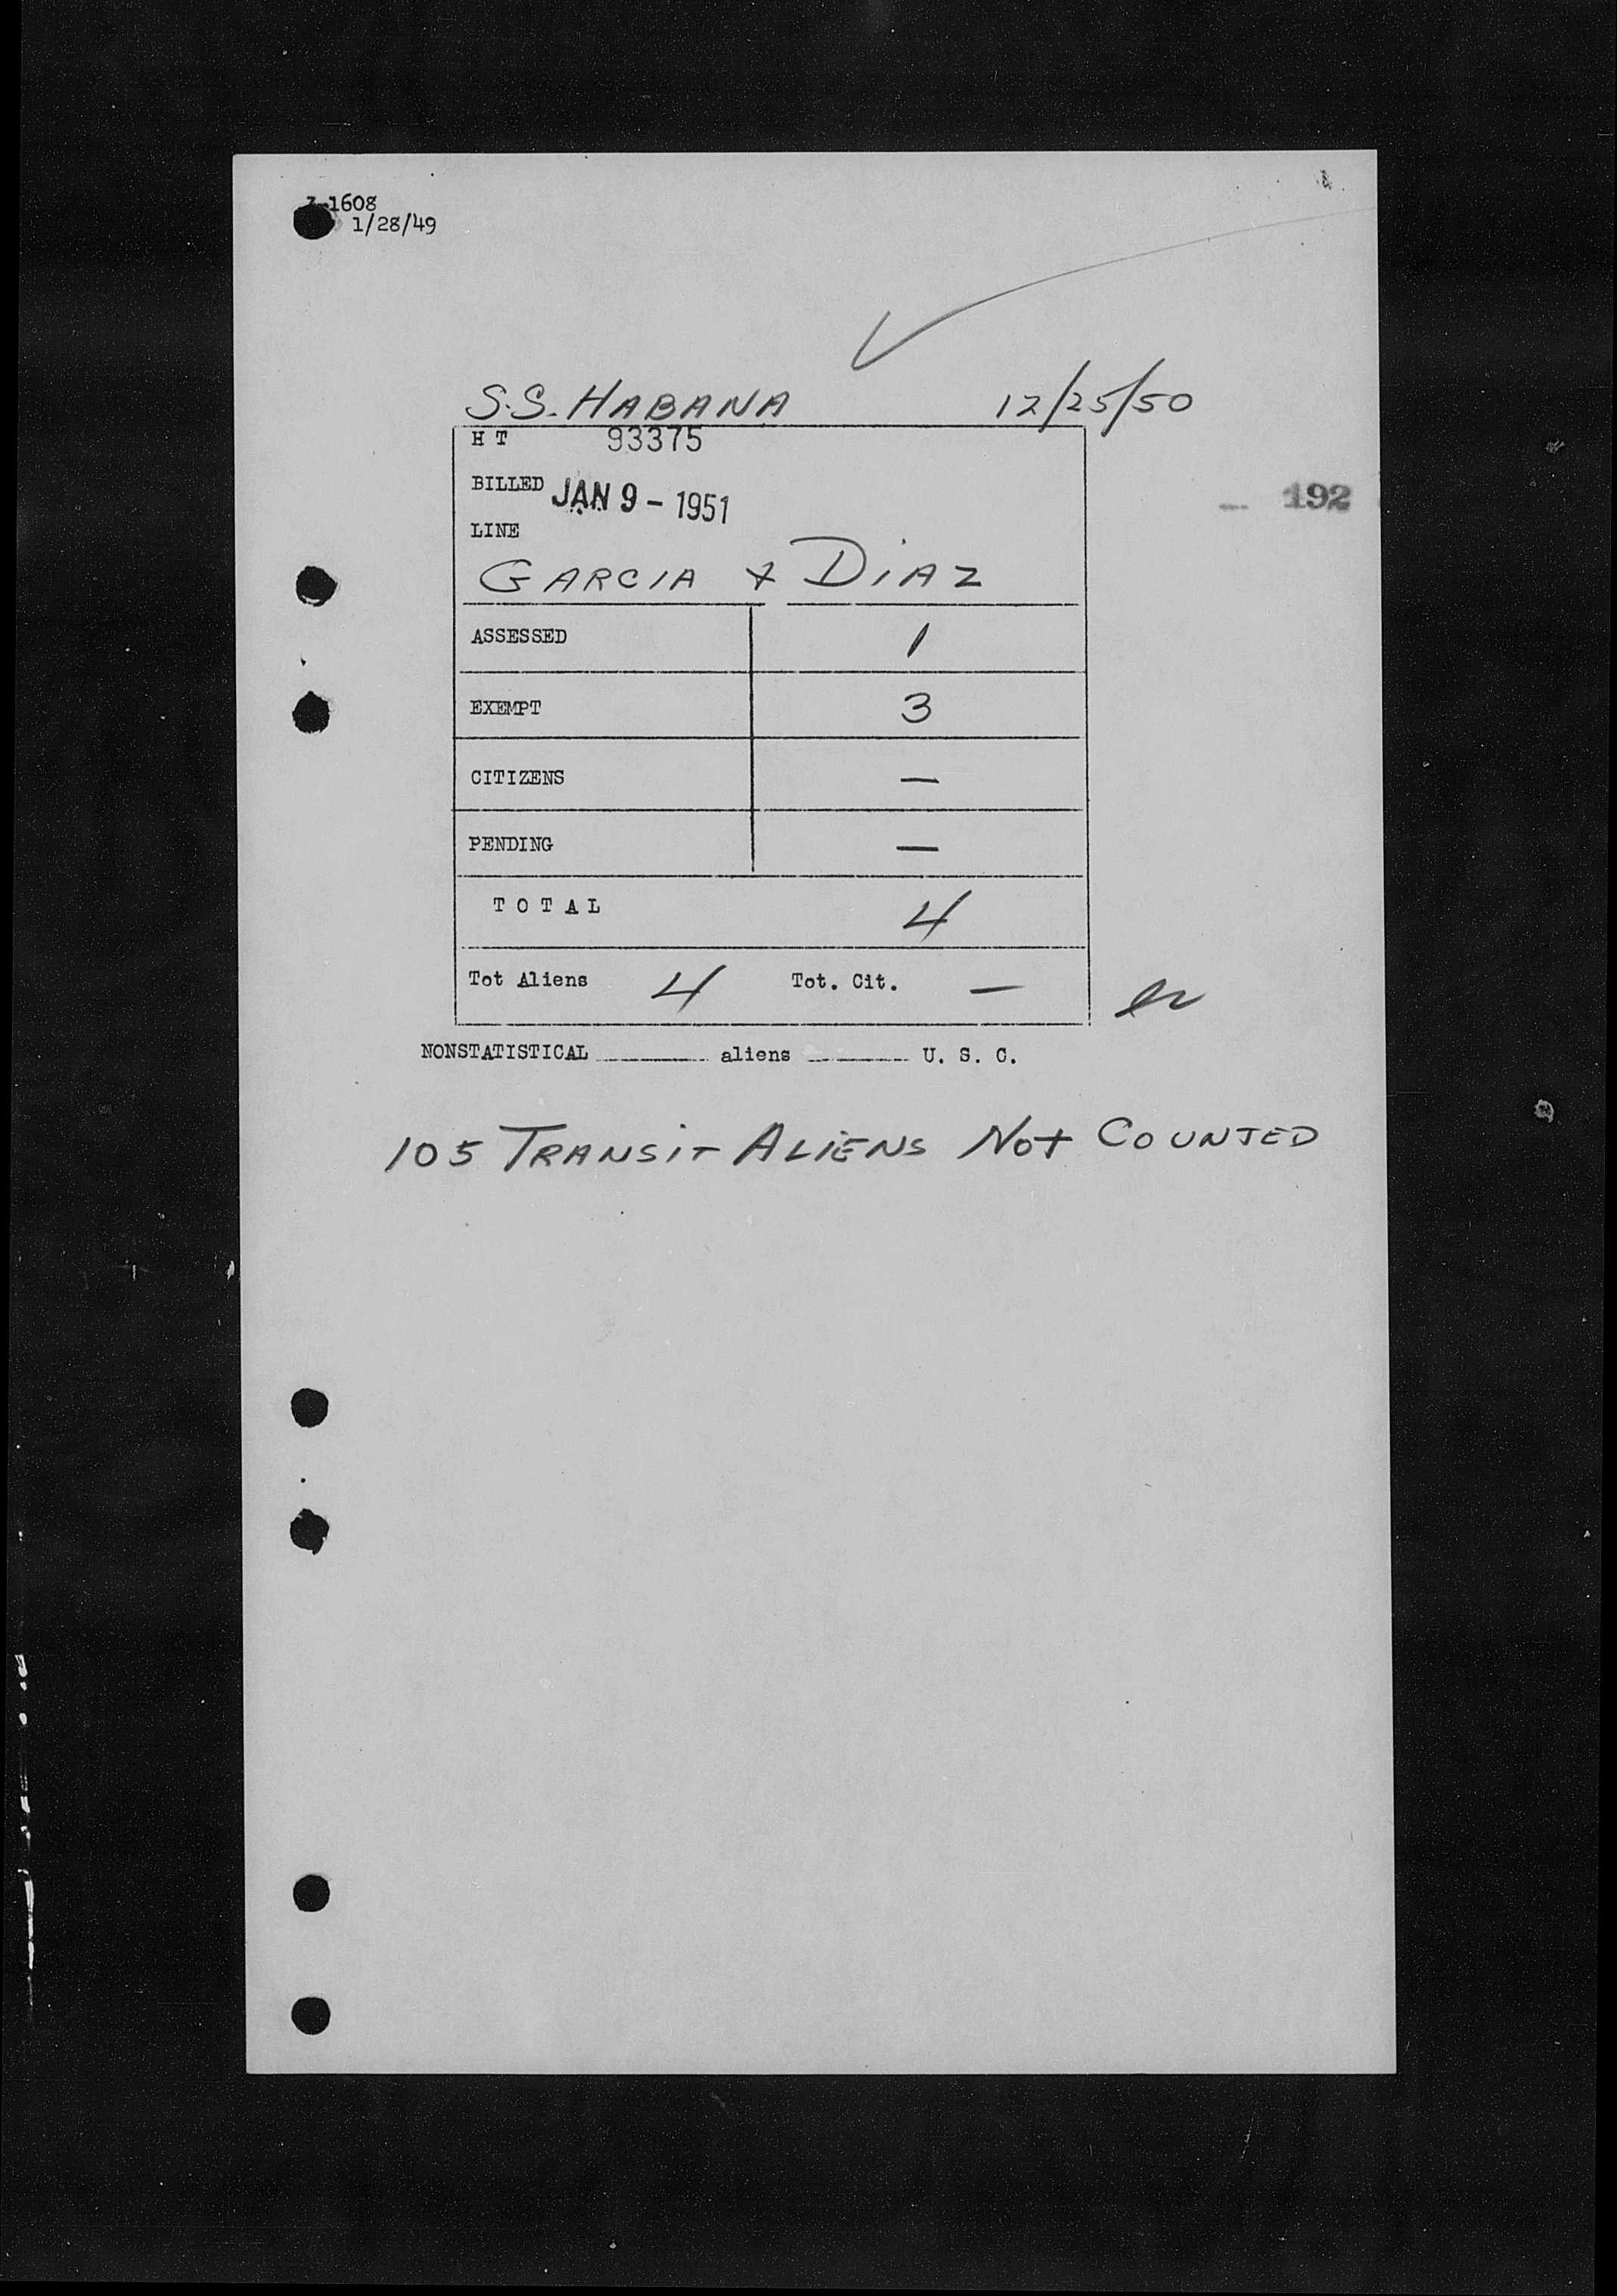 1608
1/28/49
S.S. HABANA 12/25/50
H T 93375
BILLED JAN 9 - 1951
192
LINE
GARCIA & DIAZ
ASSESSED 1
EXEMPT 3
CITIZENS —
PENDING —
TOTAL 4
Tot Aliens 4 Tot. Cit. —
NONSTATISTICAL ______ aliens ______ U. S. C.
105 TRANSIT ALIENS NOT COUNTED